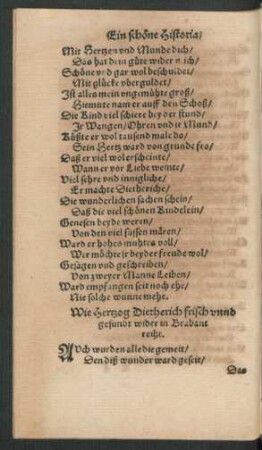 Ein schöne Historia/
Mit Hertzen vnd Munde dich/
Das hat dein güte wider mich/
Schöne vnd gar wol beschuldet/
Mit glücke vberguldet/
Ist alles mein vngemühte groß/
Hiemite nam er auff den Schoß/
Die Kind viel schiere bey der stund/
Jr Wangen/Ohren vnd jr Mund/
Küßte er wol tausend male do/
Sein Hertz ward von grunde fro/
Daß er viel wol erscheinte/
Wann er vor Liebe weinte/
Viel sehre vnd innigliche/
Er machte Dietheriche/
Die wunderlichen sachen schein/
Daß die viel schönen Kindelein/
Genesen beyde weren/
Von den viel süssen mären/
Ward er hohes muhtes voll/
Wer möchte jr beyder freude wol/
Gesagen vnd geschreiben/
Von zweyer Manne Leiben/
Ward empfangen seit noch ehe/
Nie solche wunne mehe.
Wie Hertzog Dietherich frisch vnnd
gesundt wider in Brabant
reiht.
AVch wurden alle die gemeit/
Den diß wunder ward geseit/
Das